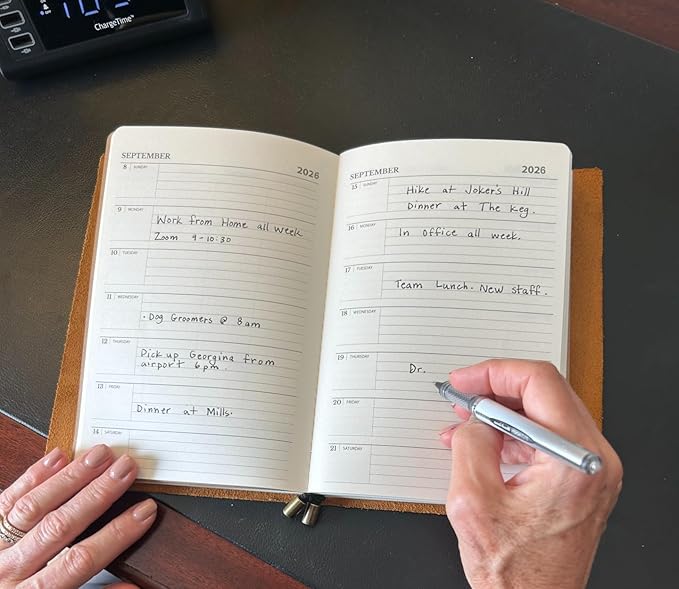 ChargeTime™
SEPTEMBER
2026
8 | SUNDAY
9 | MONDAY
Work from Home all week
Zoom 9-10:30
10 | TUESDAY
11 | WEDNESDAY
· Dog Groomers @ 8am
12 | THURSDAY
Pick up Georgina from
airport 6pm.
13 | FRIDAY
Dinner at Mills.
14 | SATURDAY
SEPTEMBER
2026
15 | SUNDAY
Hike at Joker's Hill
Dinner at The Keg.
16 | MONDAY
In office all week.
17 | TUESDAY
Team Lunch. New staff.
18 | WEDNESDAY
19 | THURSDAY
Dr.
20 | FRIDAY
21 | SATURDAY